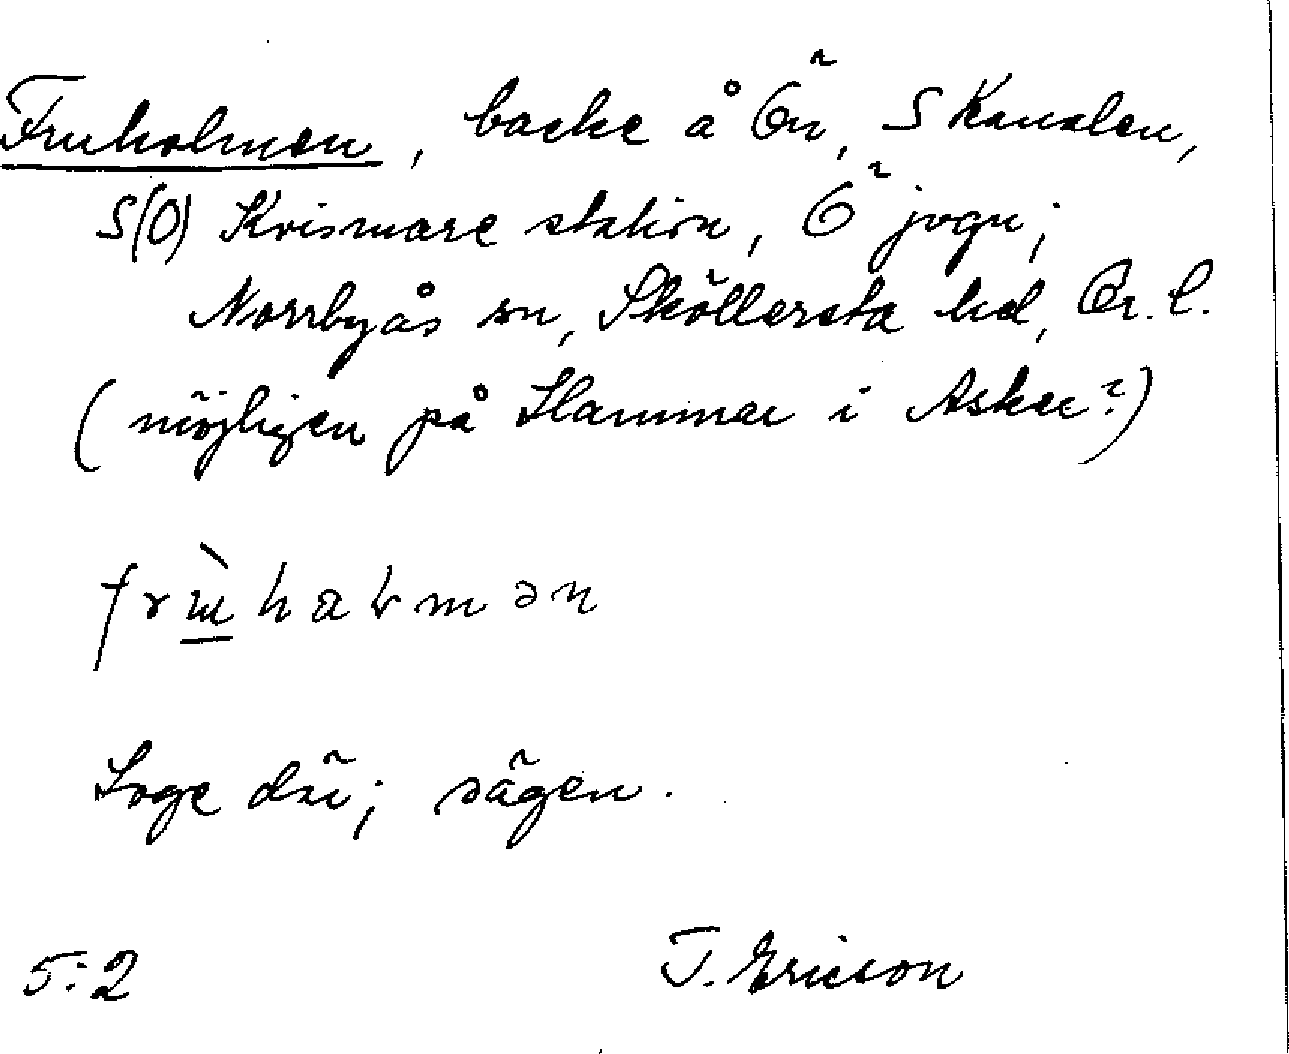 Fruholmen, backe å Ön, S Kanalen,
S(O) Kvismare station, Ö jogn;
Norrbyås sn, Sköllersta hd, Ör. l.
(möjligen på Hammar i Asker?)
frɯ̀haɫmən
Loge där; sägen.
5:2 T. Ericson